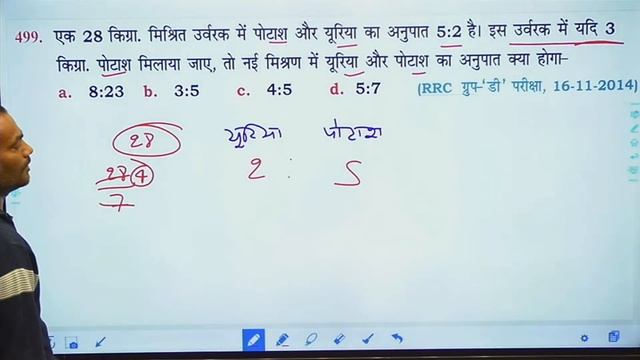 499. एक 28 किग्रा. मिश्रित उर्वरक में पोटाश और यूरिया का अनुपात 5:2 है। इस उर्वरक में यदि 3
किग्रा. पोटाश मिलाया जाए, तो नई मिश्रण में यूरिया और पोटाश का अनुपात क्या होगा–
a. 8:23 b. 3:5 c. 4:5 d. 5:7 (RRC ग्रुप-‘डी’ परीक्षा, 16-11-2014)
28 यूरिया पोटाश
28 4 2 : 5
7